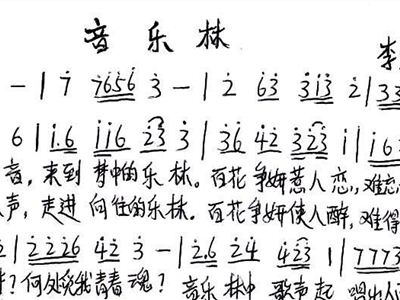 音乐林
李
- | 7 7656 3 - | 2 63 313 2 | 33
6 | 1.6 116 23 3 | 36 42 323 1 | 163
音，来到梦中的乐林。百花争妍惹人恋，难忘
声，走进向往的乐林。百花争妍使人醉，难得
2 | 2226 42 3 - | 2.6 24 423 1 | 7773
？何处说我青春魂？音乐林中歌声起